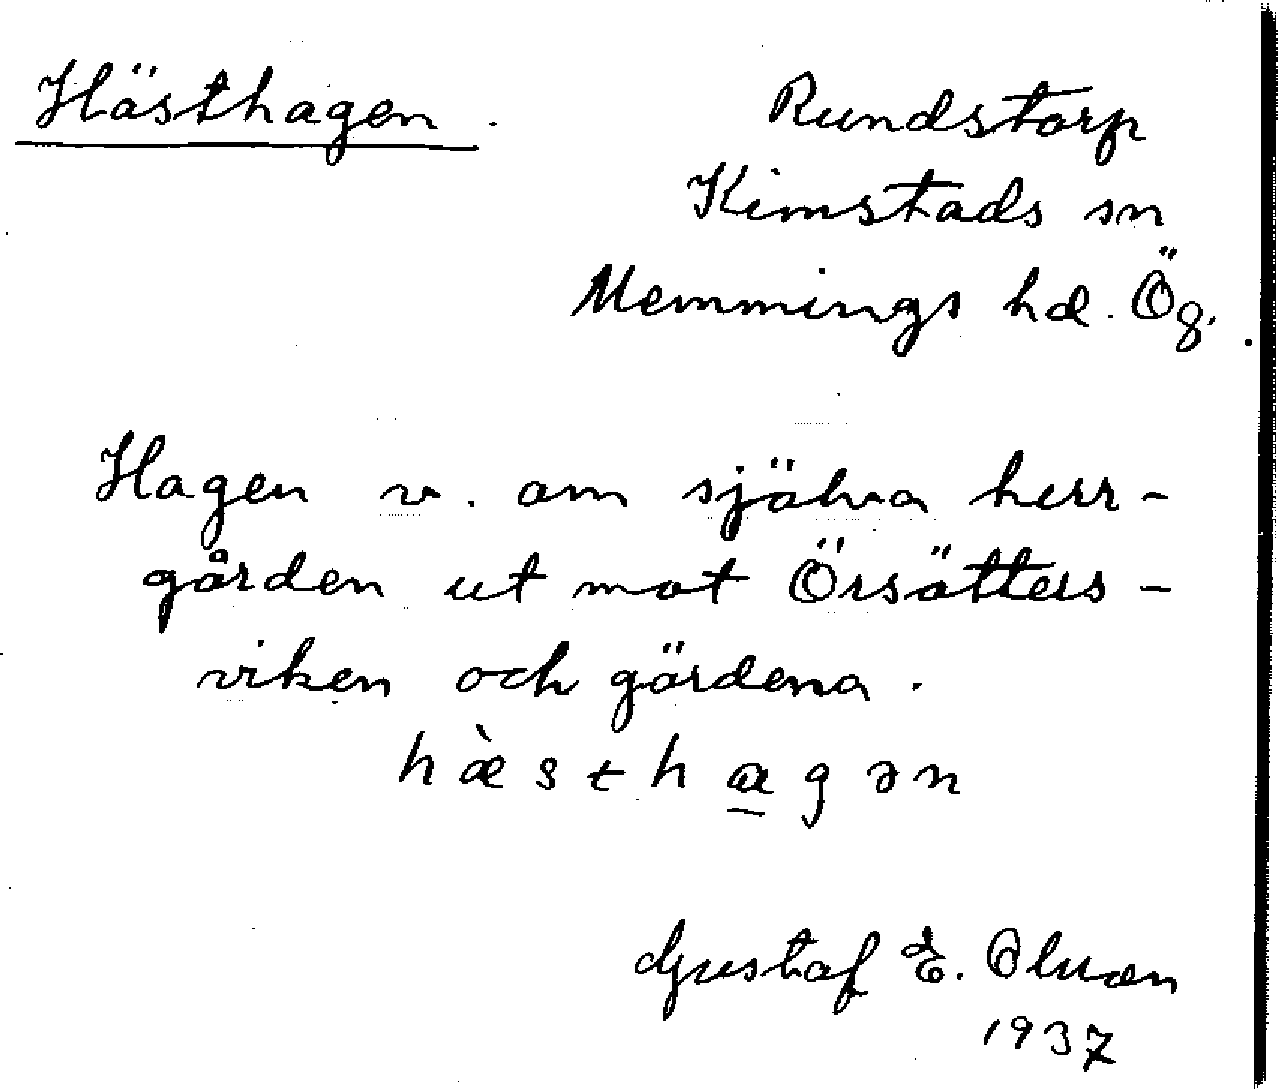 Hästhagen.
Rundstorp
Kimstads sn
Memmings hd. Ög.
Hagen v. om själva herr-
gården ut mot Örsätters-
viken och gärdena.
hæ̀stha̲gən
Gustaf E. Olsson
1937